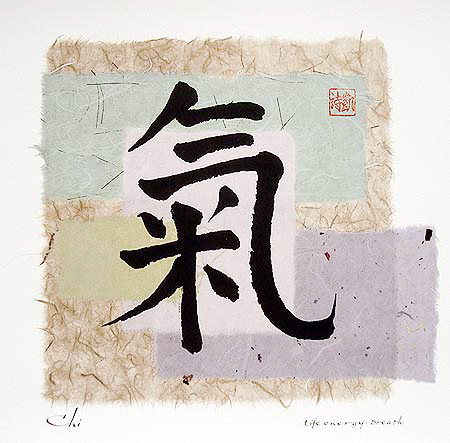 氣
Chi
Life energy Breath